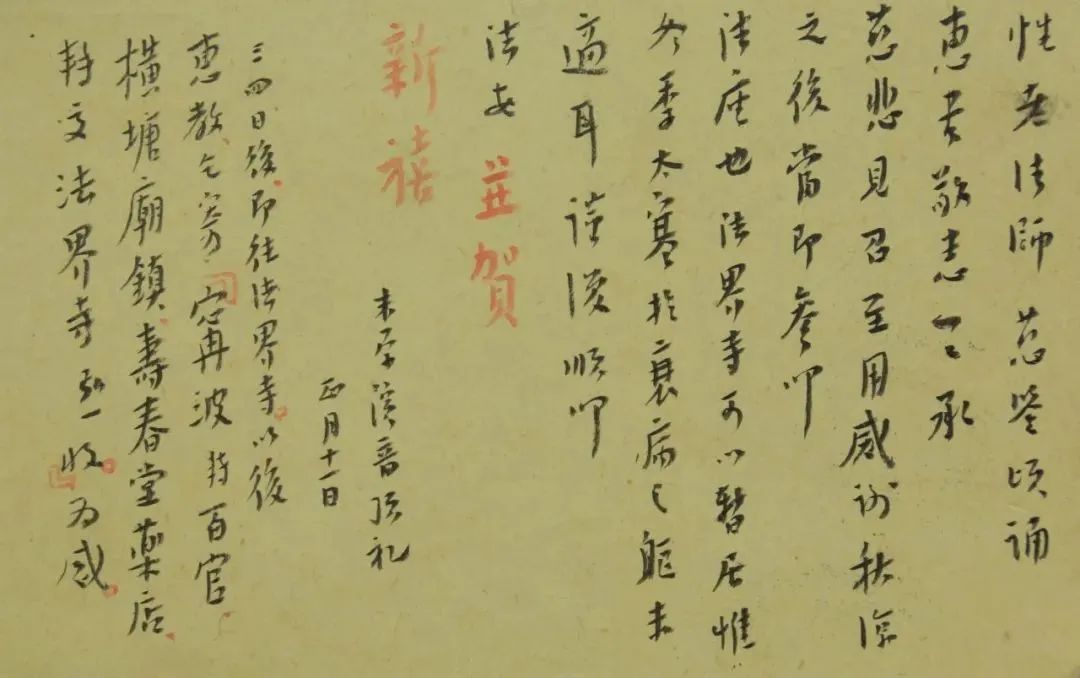 性老法師 慈鑒頃誦
惠書敬悉一一承
慈悲見召至用感謝秋涼
之後當即參叩
法座也法界寺可以暫居惟
冬季太寒於衰病之軀未
適耳謹復順叩
法安 並賀
新禧
末學演音頂禮
正月十一日
三四日後即往法界寺。以後
惠教乞寄寧波 轉百官
橫塘廟鎮、壽春堂藥店、
轉交法界寺弘一收。為感。